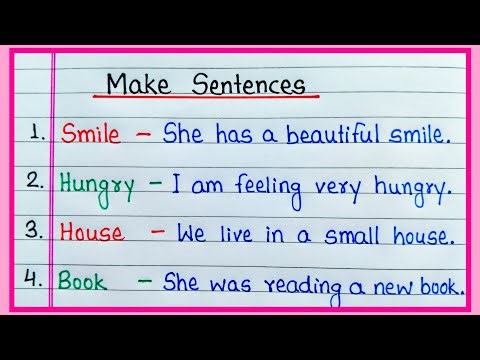 Make Sentences
1. Smile - She has a beautiful smile.
2. Hungry - I am feeling very hungry.
3. House - We live in a small house.
4. Book - She was reading a new book.